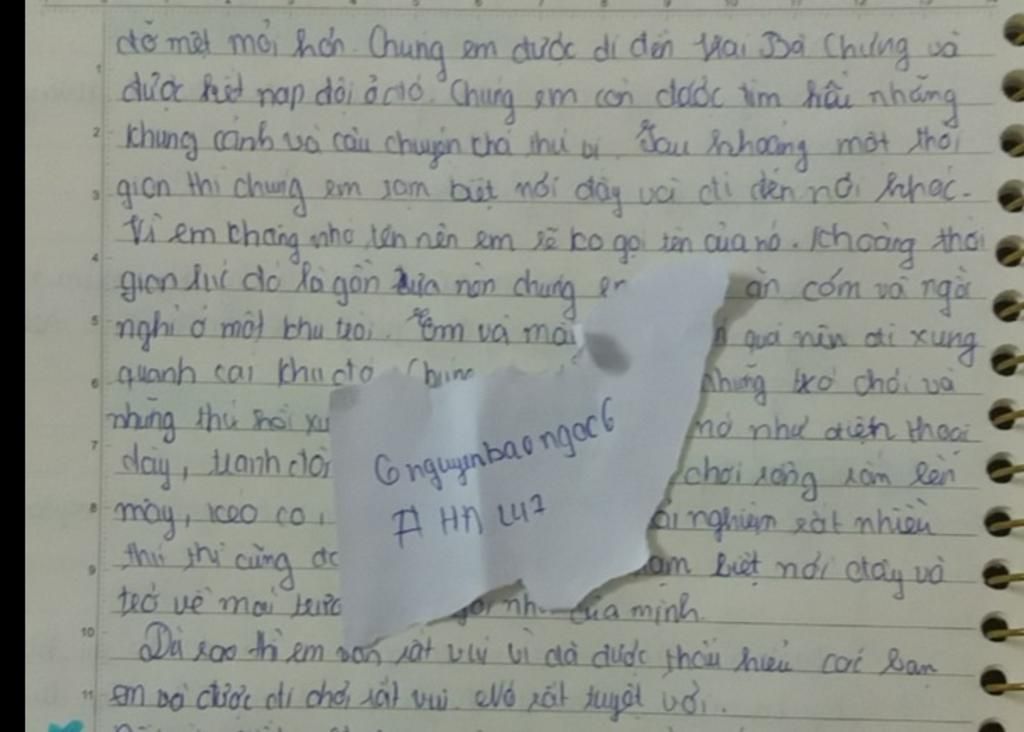 đỡ mệt mỏi hơn. Chúng em được đi đến Hai Bà Chưng và
được kết nạp đội ở đó. Chúng em còn được tìm hểu những
khung cảnh và câu chuyện thú vị. Sau khoảng một thời
gian thì chúng em tạm biệt nơi đây và đi đến nơi khác.
Vì em chẳng nhớ tên nên em sẽ ko gọi tên của nó. Khoảng thời
gian lúc đó là gần trưa nên chúng ăn cơm và ngồi
nghỉ ở một khu trời. Em và mai quá nên đi xung
quanh cái khu đó những trò chơi và
những thứ nó như điện thoại
dây, tranh chơi sòng
mây, kéo co, nghiệm rất nhiều
thứ thì cũng biệt nơi đây và
trở về mái của mình.
Dù sao thì em vẫn rất vui vì đã được thấu hiểu các bạn
em và được đi chơi rất vui. Nó rất tuyệt vời.
6nguyenbaongoc6
A HA L42